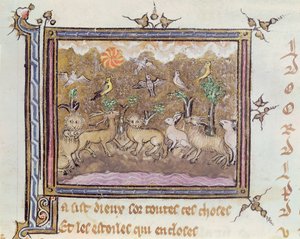 a fist dieux sor toutes ces choses
Et les estoiles qui encloses